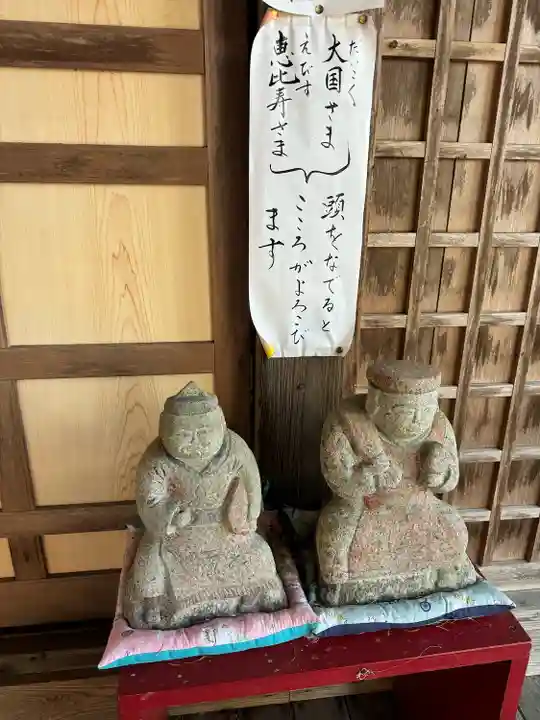 たいこく
大国さま
えびす
恵比寿さま
頭をなでると
こころがよろこび
ます